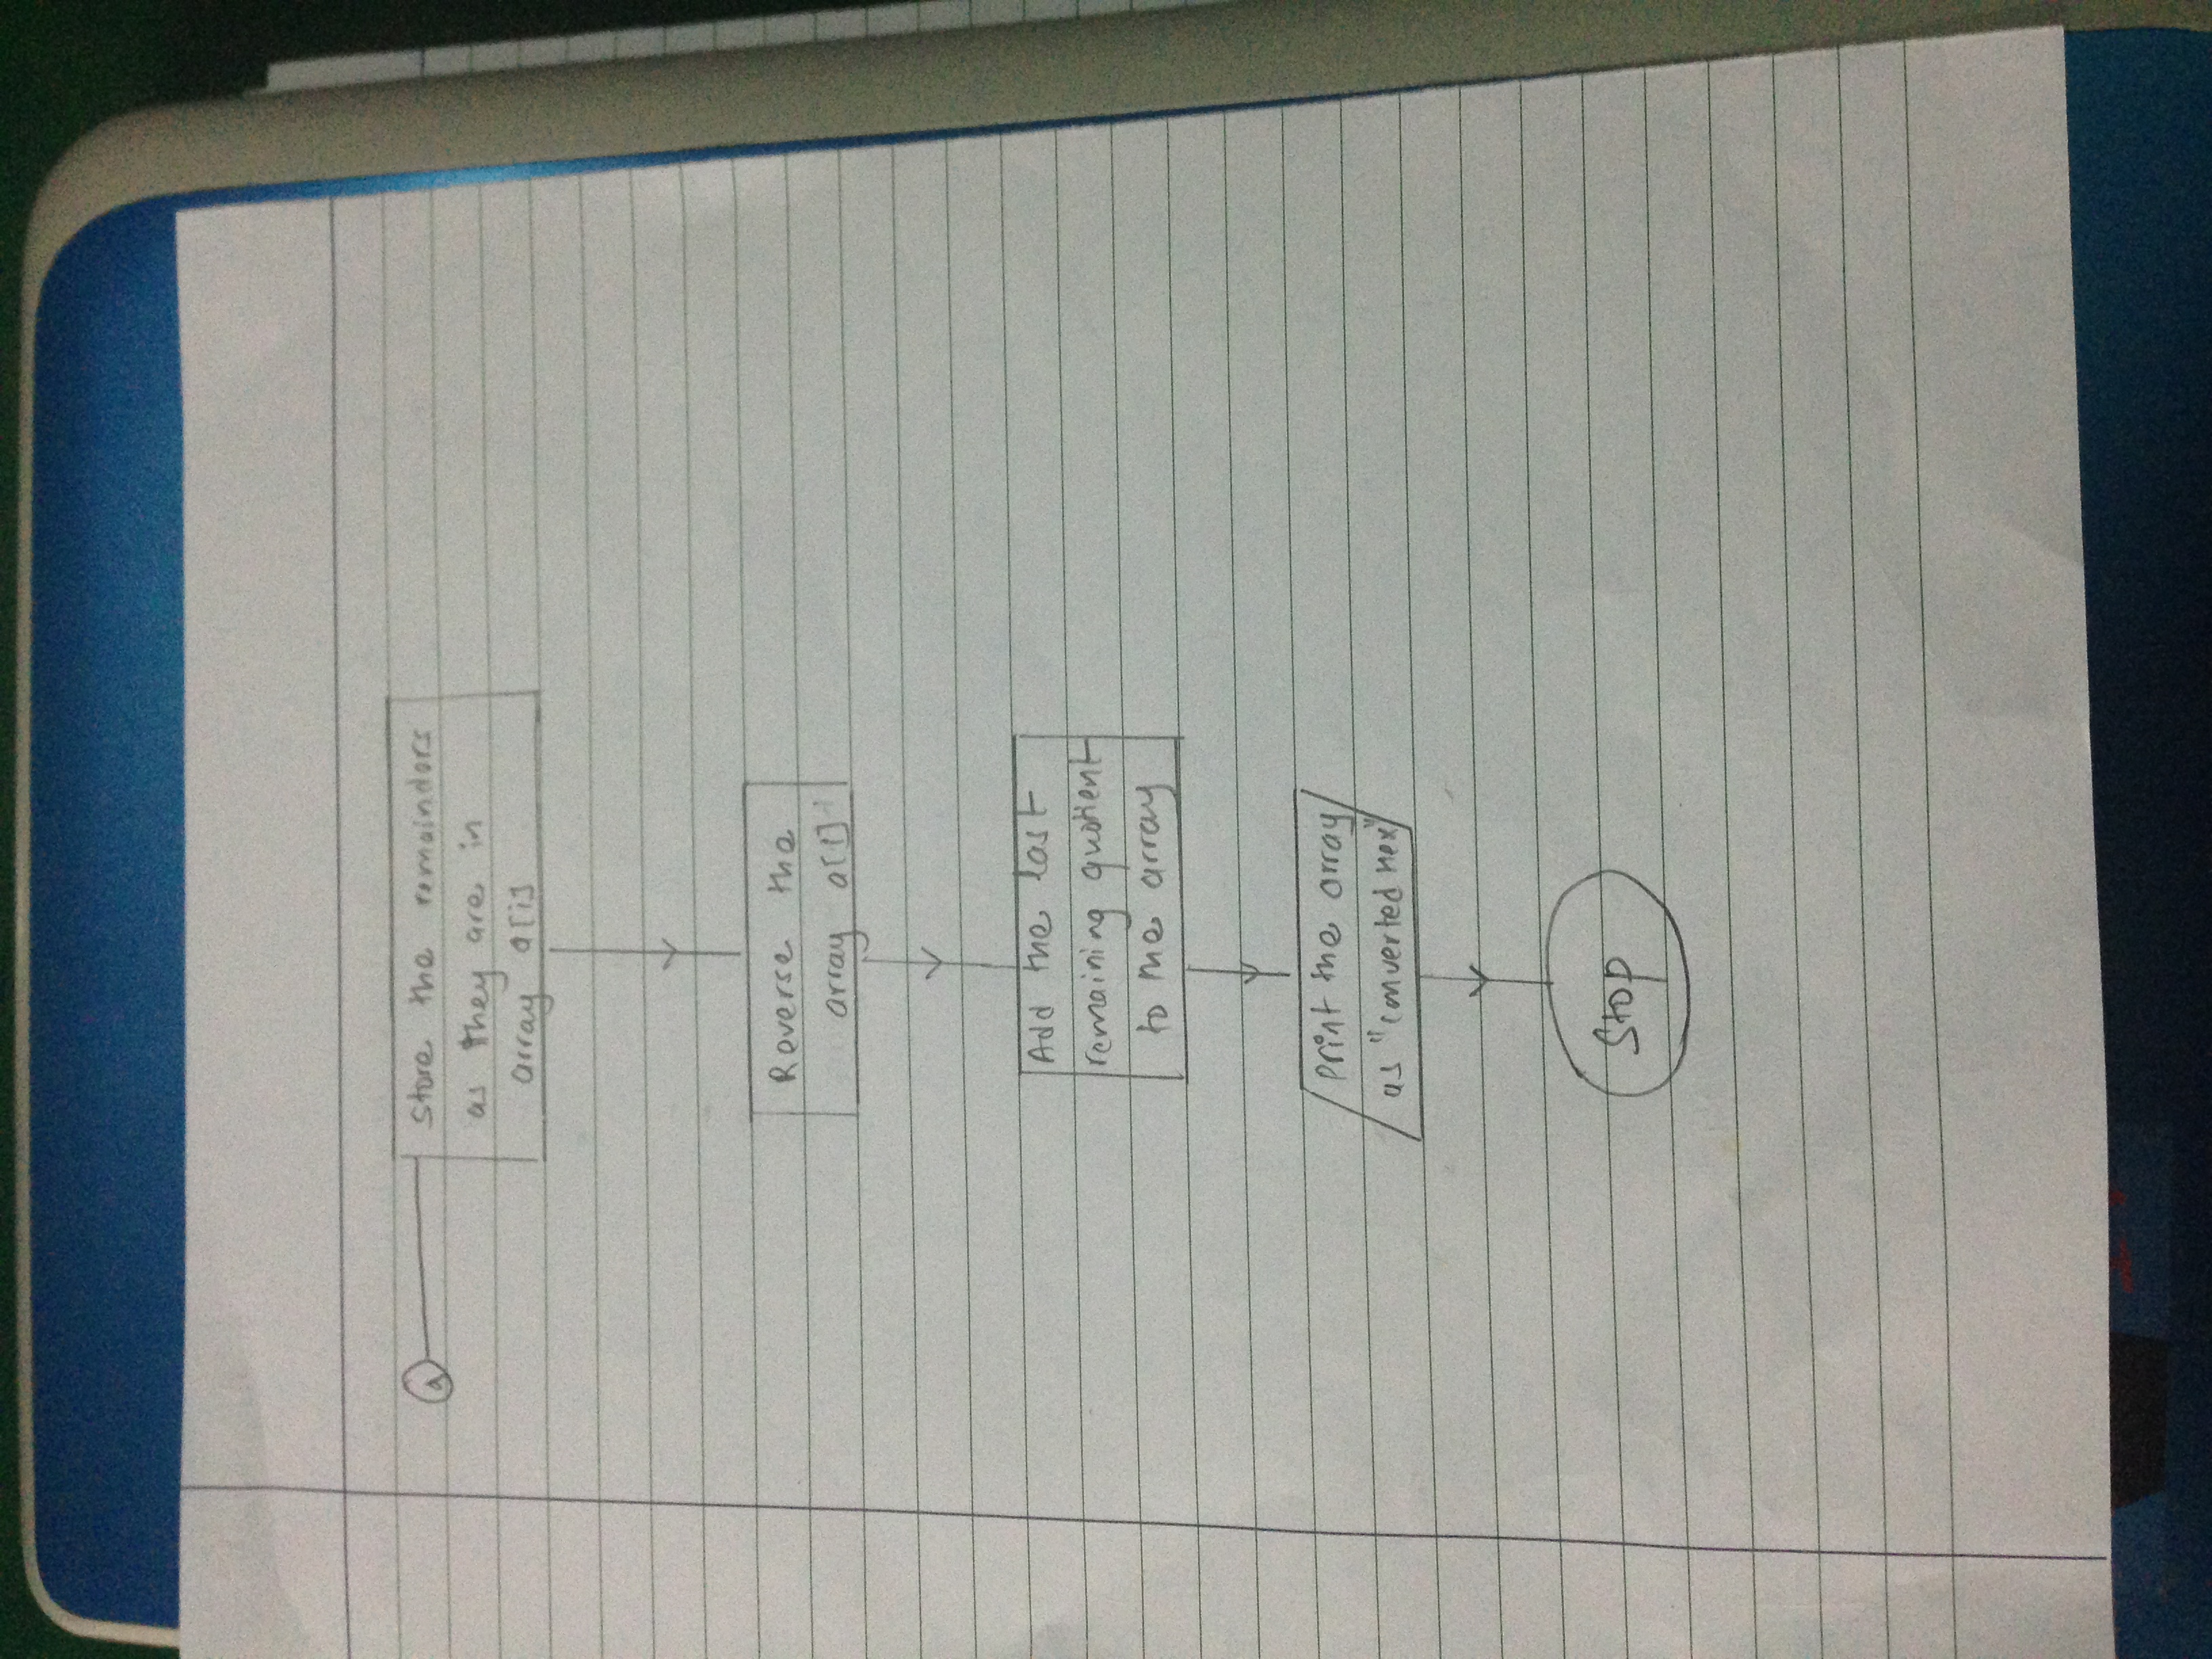 a
Store the remainders
as they are in
array a[i]
Reverse the
array a[i]
Add the last
remaining quotient
to the array
Print the array
as "converted Hex"
Stop